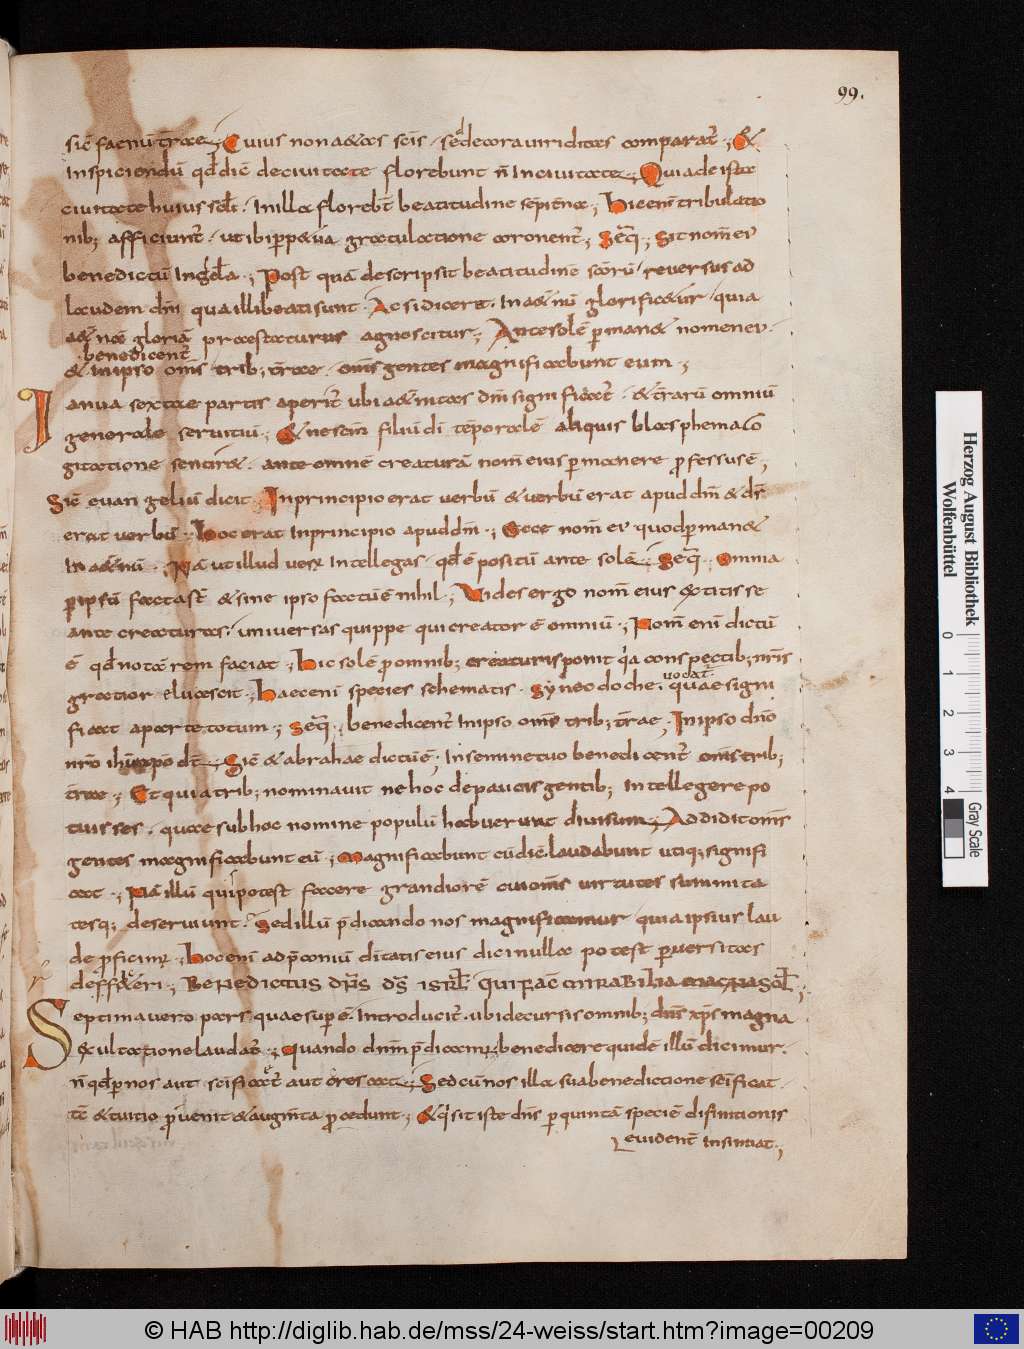 99.
sic̄ faenū t̄rae; Cuius non aetas sc̄is, sed decora uiriditas comparat̄; &
inspiciendū qđ dic̄ de ciuitate florebunt n̄ In ciuitate; Quia de ista
ciuitate huius scłi. In illa florebt̄ beatitudine sēpitna; hic enī tribulatio
nib; afficiunt̄. ut ibi ꝑpetua gratulatione coronent̄; Seq̄; Sit nom̄ ei'
benedictū In scła; Post quā descripsit beatitudinē sc̄orū, reuersus ad
laudem dn̄i qua illi beati sunt. Ac si diceret. In aet̄nū glorificetur, quia
aet̄nā gloriā praestaturus agnoscitur; Ante solē ꝑmanet nomen ei'.
benedicent̄
& in ipso om̄s trib; t̄rae. om̄s gentes magnificabunt eum;
Ianua sextae partis aperit̄ ubi aet̄nitas dn̄i significat̄. & t̄rarū omniū
generale seruitiū; & ne sc̄m filiū dī tēporalē aliquis blasphema co
gitatione sentiret. ante omnē creaturā nom̄ eius ꝑmanere ꝓfessus ē;
Sic̄ euangeliū dicit In principio erat uerbū & uerbū erat apud dm̄ & ds̄
erat uerbū; Hoc erat In principio apud dm̄; Ecce nom̄ ei' quod ꝑmanet
In aet̄nū; Nā ut illud ueꝝ Intellegas. qđ ē positū ante solē; Seq̄; Omnia
ꝑ ipsū facta sт̄ & sine ipso factū ē nihil; Uides ergo nom̄ eius extitisse
ante creaturas. uniuersas quippe qui creator ē omniū; Nom̄ enī dictū
ē qđ notā rem faciat; hic solē ꝓ omnib; creaturis ponit qa conspectib; nr̄is
uocat̄
gratior eluxscit; Haec enī species schematis. Synecdoche. quae signi
ficat a parte totum; Seq̄; benedicent̄ In ipso om̄s trib; t̄rae; In ipso dn̄o
nr̄o ih̄u xp̄o dt̄; Sic̄ & abrahae dictū ē; In semine tuo benedicent̄ om̄s trib;
t̄rae; Et quia trib; nominauit ne hoc de paucis gentib; Intellegere po
tuisses. quae sub hoc nomine populū habuerunt diuisum; Addidit om̄s
gentes magnificabunt eū; Magnificabunt cū dic̄. laudabunt utiq; signifi
cat; Nā illū quis potest facere grandiorē cui om̄s uirtutes summita
tesq; deseruiunt. Sed illū p̄dicando nos magnificamur quia ipsius lau
de ꝓficimꝰ; Hoc enī ad p̄coniū ditatis eius dici nulla potest peruersitas
deffateri; BENEDICTUS DN̄S DS̄ ISRŁ QUI FAC̄ MIRABILIA MAGNA SOŁ;
Septima uero pars quae supē. Introducit̄. ubi decursis omnib; dn̄s xp̄s magna
exultatione laudat̄; Quando dn̄m p̄dicamꝰ, benedicere quidē illū dicimur.
n̄ qđ ꝑ nos aut sc̄ificet̄ aut crescat; Sed cū nos illa sua benedictione sc̄ificat.
tē & tuitio ꝓuenit & augm̄ta ꝓcedunt; & qs sit iste dn̄s ꝑ quintā speciē difinitionis
euident̄ insinuat;
Herzog August Bibliothek
Wolfenbüttel
0 1 2 3 4
Gray Scale
© HAB http://diglib.hab.de/mss/24-weiss/start.htm?image=00209